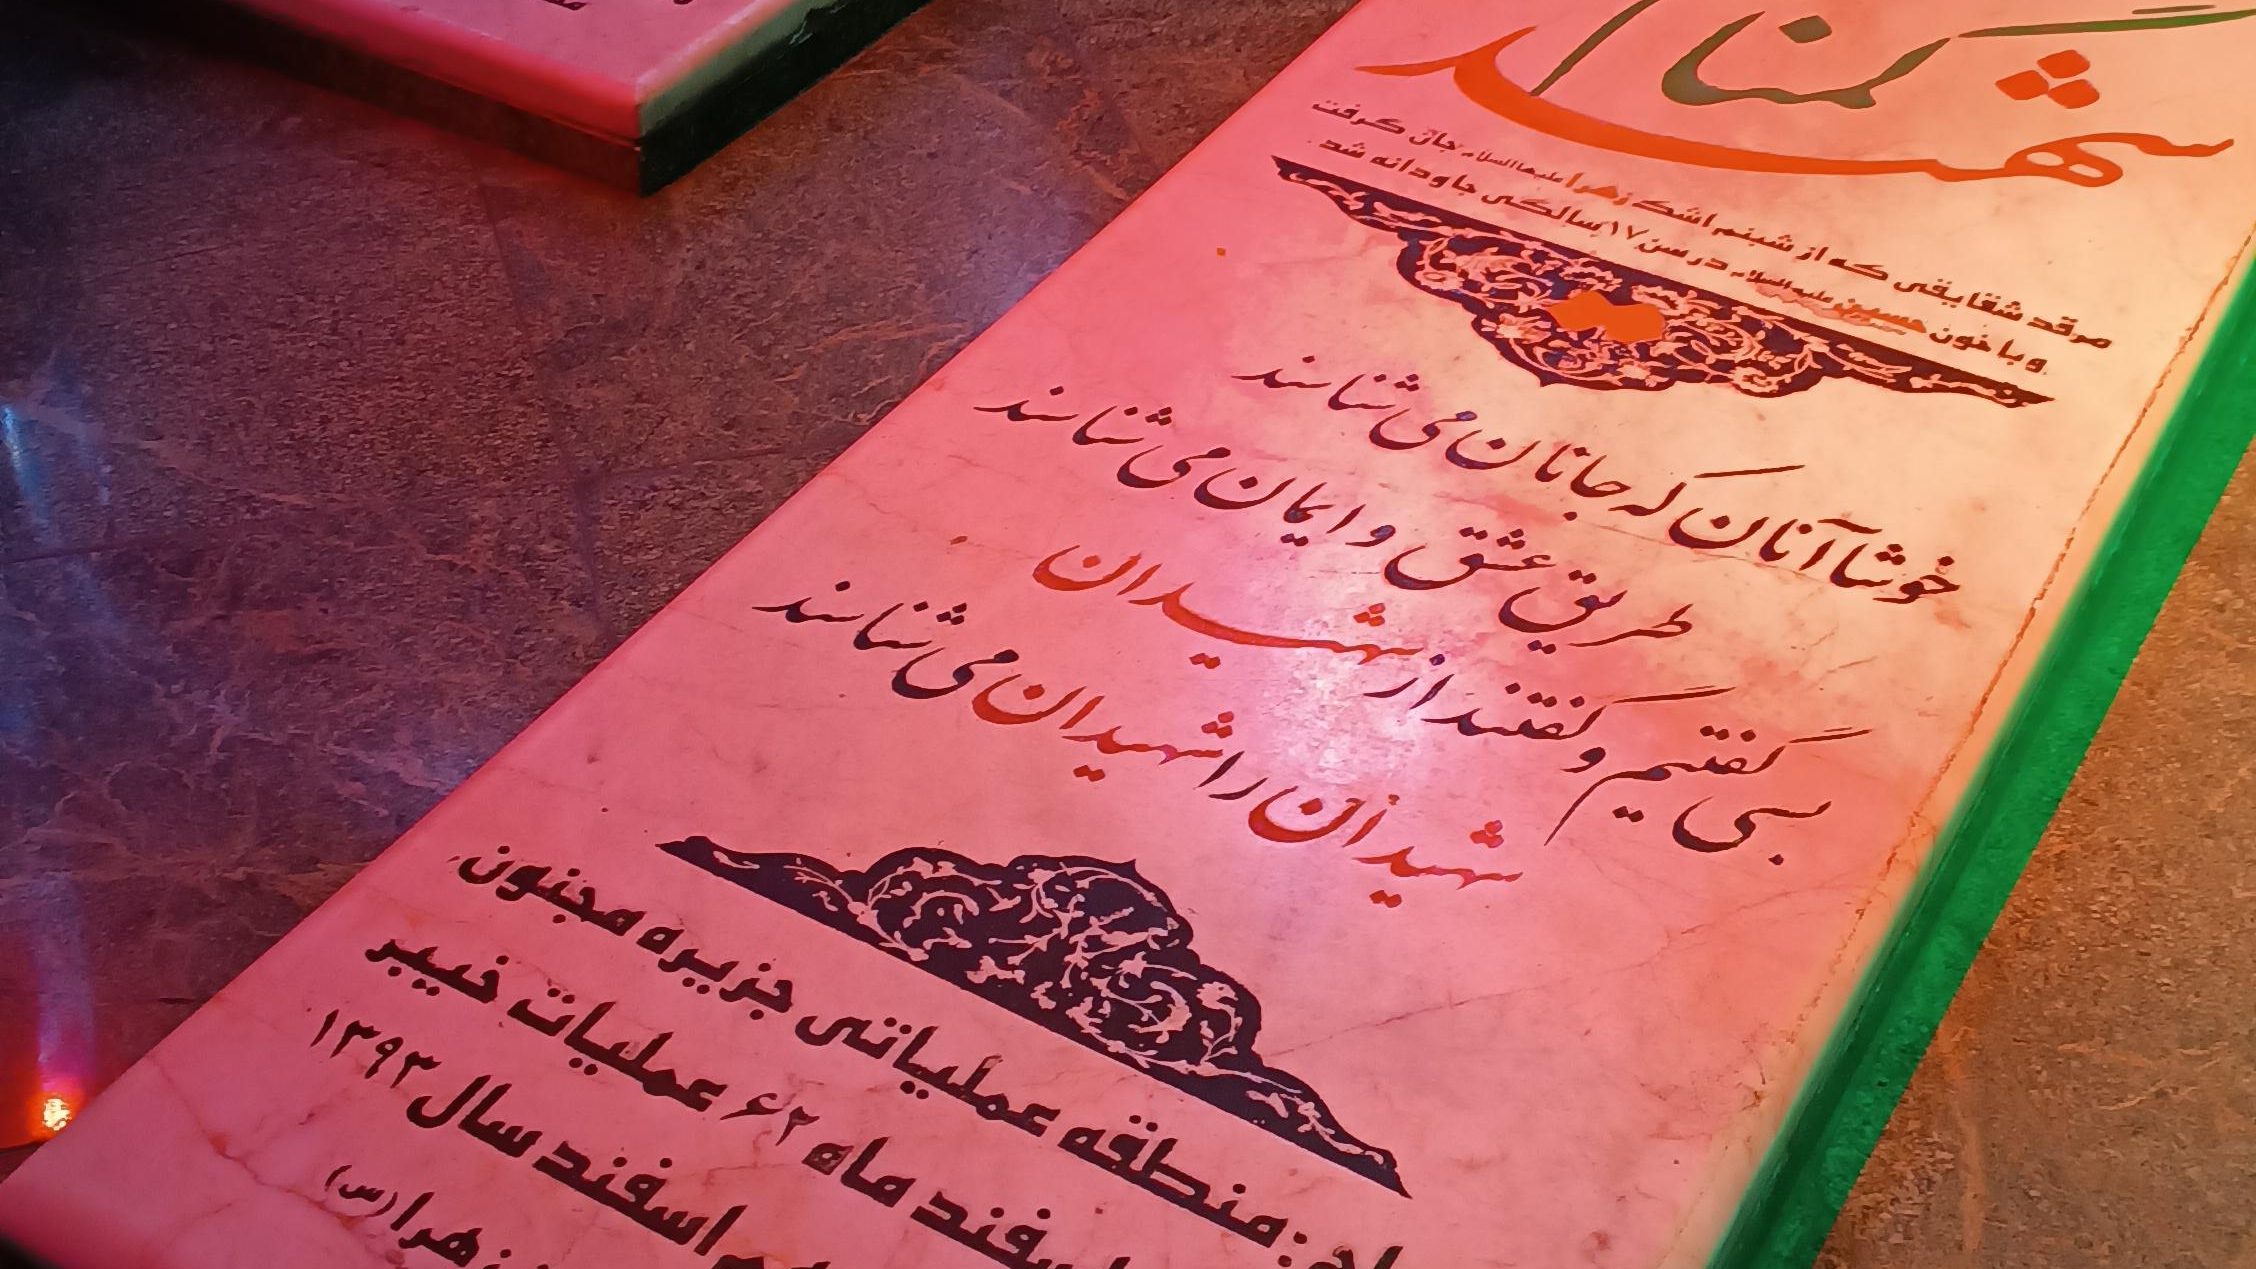 شهید گمنام
مرقد شقایقی که از شبنم اشک زهرا علیهاالسلام جان گرفت
و با خون حسین علیه السلام در سن ۱۷ سالگی جاودانه شد
خوشا آنان که جانان می شناسند
طریق عشق و ایمان می شناسند
بسی گفتیم و گفتند از شهیدان
شهیدان را شهیدان می شناسند
: منطقه عملیاتی جزیره مجنون
اسفند ماه ۶۲ عملیات خیبر
اسفند سال ۱۳۹۳
زهرا (س)